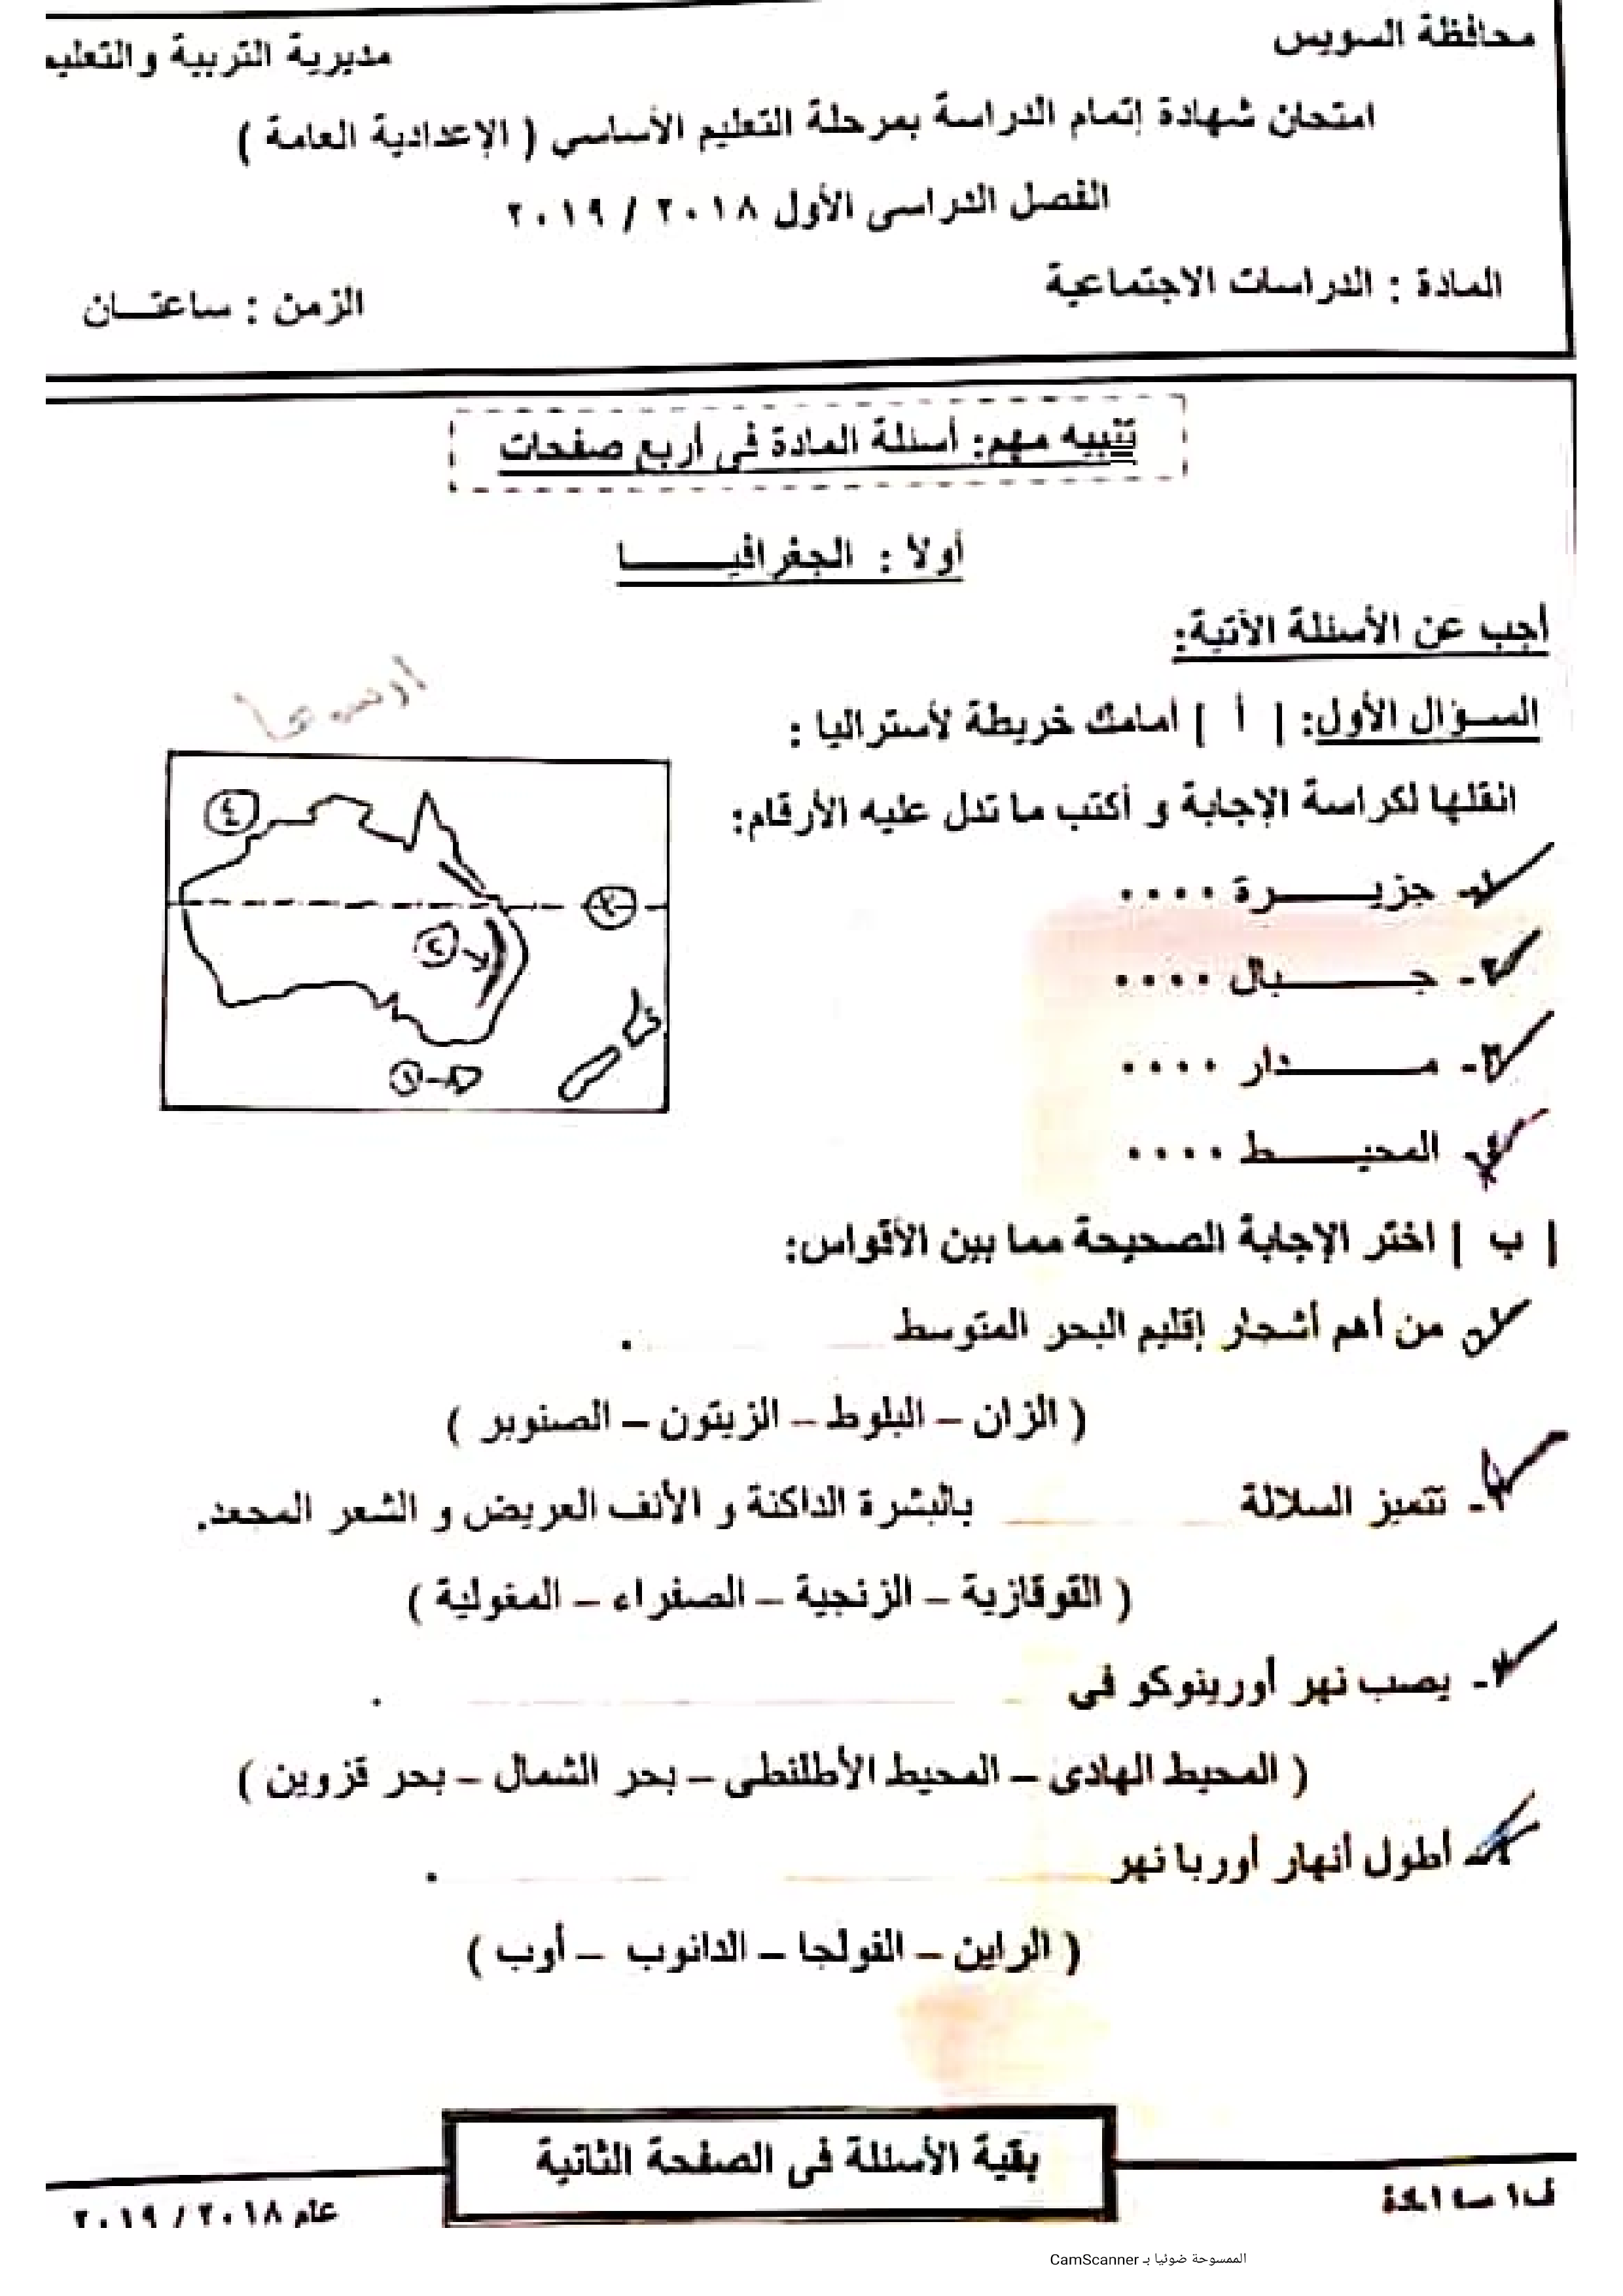 محافظة السويس
مديرية التربية والتعليم
امتحان شهادة إتمام الدراسة بمرحلة التعليم الأساسي ( الإعدادية العامة )
الفصل الدراسى الأول ٢٠١٨ / ٢٠١٩
المادة : الدراسات الاجتماعية
الزمن : ساعتـــان
تنبيه مهم: أسئلة المادة في أربع صفحات
أولا : الجغرافيـــــــا
أجب عن الأسئلة الآتية:
السـؤال الأول: [ أ ] أمامك خريطة لأستراليا :
انقلها لكراسة الإجابة و أكتب ما تدل عليه الأرقام:
١- جزيـــــرة ٠٠٠٠
٢- جـــــــبال ٠٠٠٠
٣- مـــــــدار ٠٠٠٠
٤- المحيـــــط ٠٠٠٠
٤
٣
٢
١
[ ب ] اختر الإجابة الصحيحة مما بين الأقواس:
١- من أهم أشجار إقليم البحر المتوسط .
( الزان – البلوط – الزيتون – الصنوبر )
٢- تتميز السلالة بالبشرة الداكنة و الأنف العريض و الشعر المجعد.
( القوقازية – الزنجية – الصفراء – المغولية )
٣- يصب نهر أورينوكو في .
( المحيط الهادى – المحيط الأطلنطى – بحر الشمال – بحر قزوين )
٤- أطول أنهار أوربا نهر .
( الراين – الفولجا – الدانوب – أوب )
بقية الأسئلة فى الصفحة الثانية
عام ٢٠١٨ / ٢٠١٩
الممسوحة ضوئيا بـ CamScanner